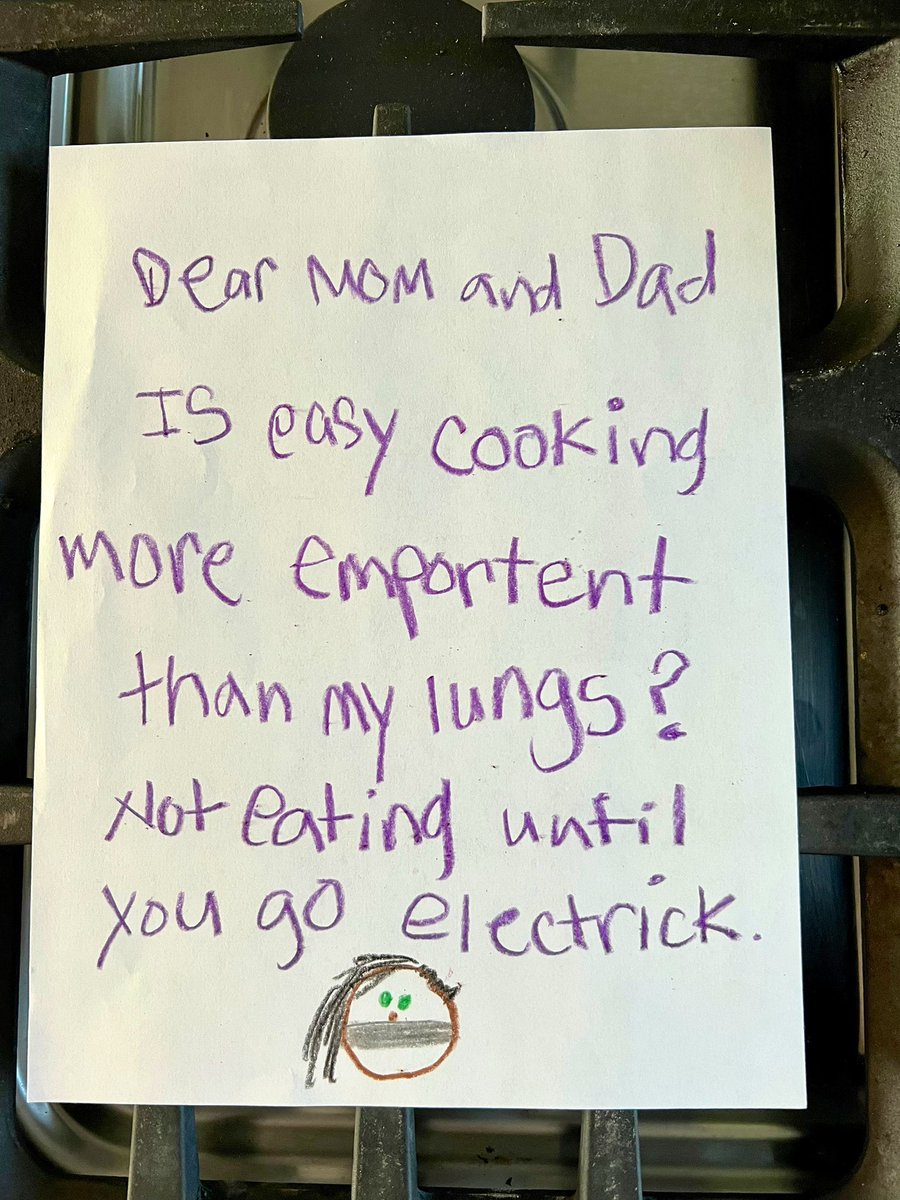 Dear Mom and Dad
Is easy cooking
more emportent
than my lungs?
Not eating until
you go electrick.